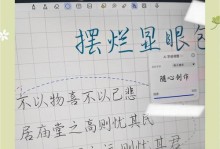 摆烂显眼包
随心创作
不以物喜不以己悲
居庙堂之高则忧其民
则忧其君